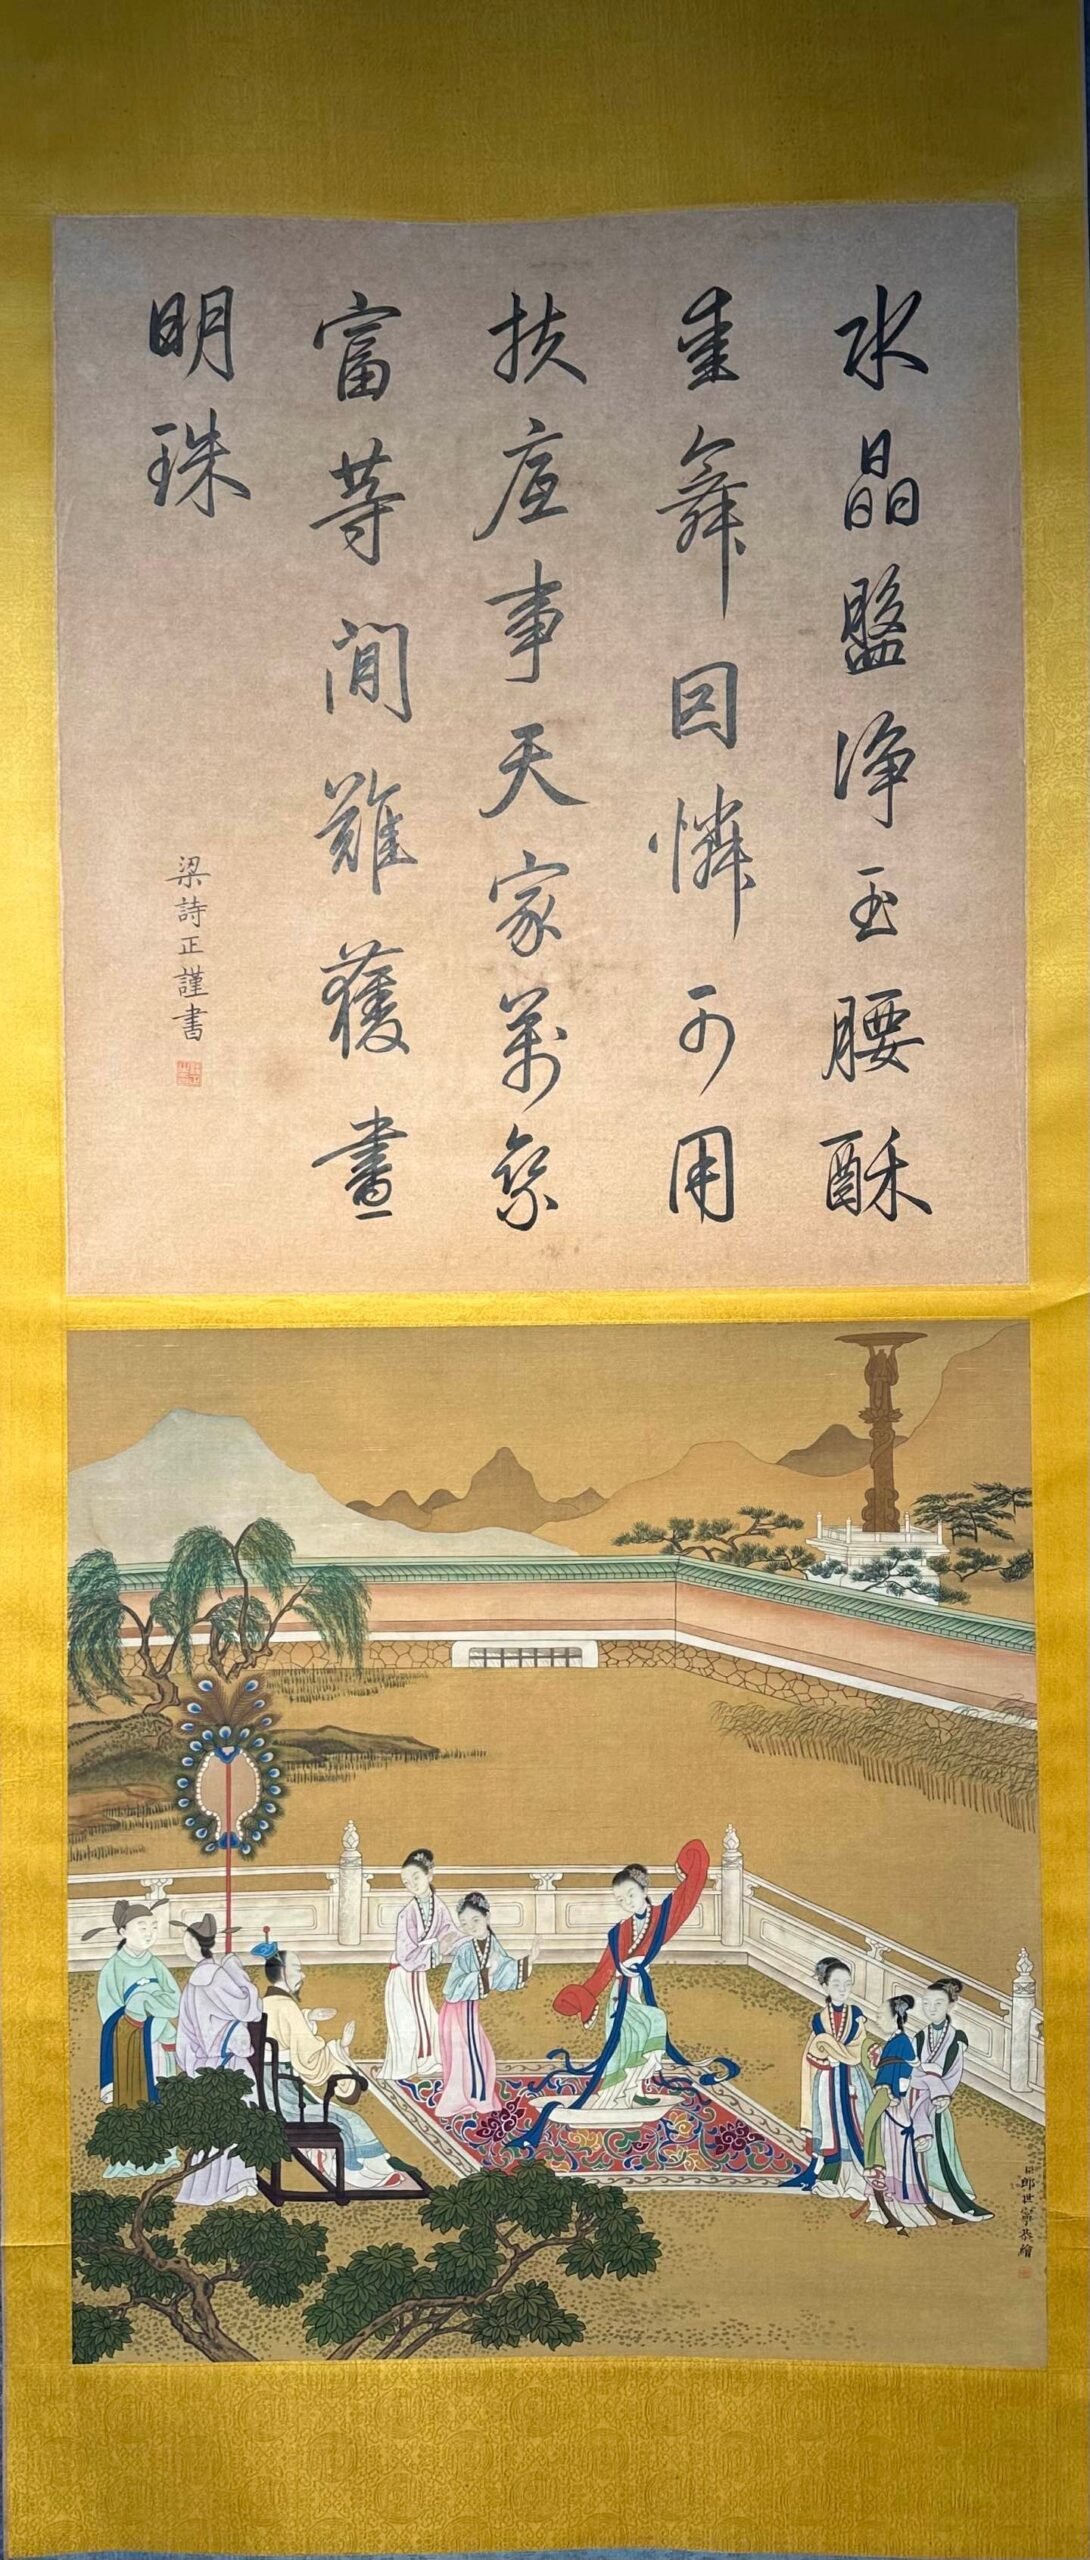 水晶盤淨玉腰酥
重舞因憐可用
扶底事天家萬
富等閒難獲畫
明珠
梁詩正謹書
臣郎世寧恭繪